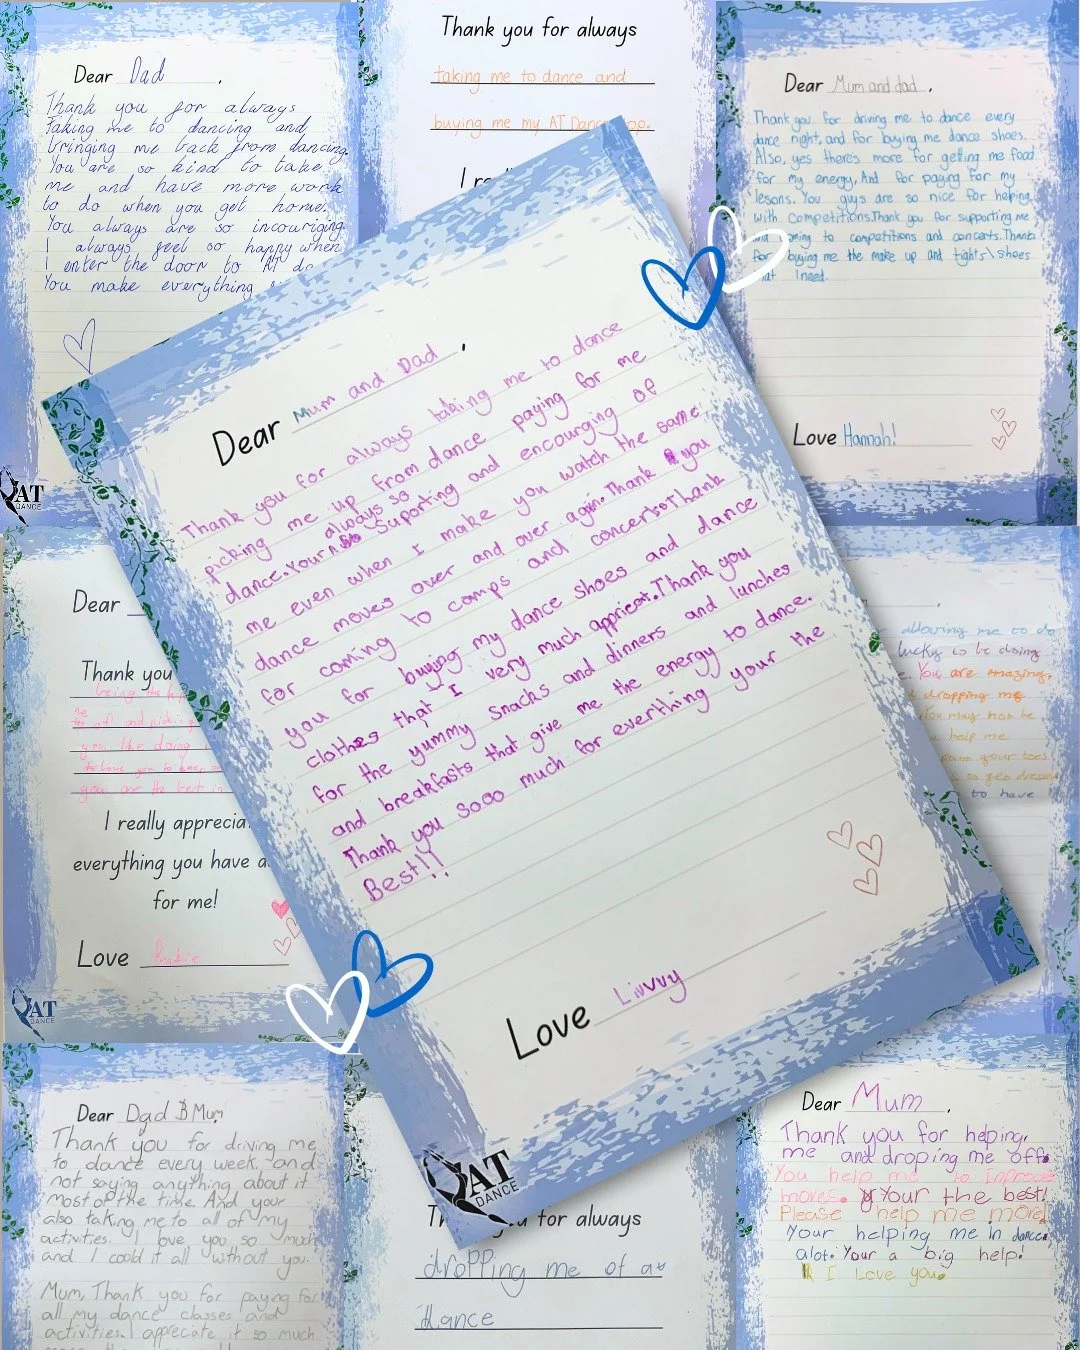 Dear Dad ,
Thank you for always
taking me to dancing and
bringing me back from dancing.
You are so kind to take
me and have more work
to do when you get home.
You always are so incouriging
I always feel so happy when
I enter the door to AT
You make everything
AT
DANCE
Thank you for always
taking me to dance and
buying me my AT Dance
Dear Mum and dad ,
Thank you for driving me to dance every
dance night, and for buying me dance shoes.
Also, yes theres more for getting me food
for my energy, And for paying for my
lesons. You guys are so nice for helping
with competitions. Thank you for supporting me
to competitions and concerts. Thanks
for buying me the make up and tights\shoes
I need.
Love Hannah!
Dear Mum and Dad ,
Thank you for always taking me to dance
picking me up from dance paying for me
dance. Your always so suporting and encourging of
me even when I make you watch the same
dance moves over and over again. Thank you
for coming to comps and concerts. Thank
you for buying my dance shoes and dance
clothes that I very much appricet. Thank you
for the yummy snacks and dinners and lunches
and breakfasts that give me the energy to dance.
Thank you sooo much for everthing your the
Best!!
Love Livvvy
AT
DANCE
Dear
Thank you
of and
you
you are the best
I really
everything you have
for me!
Love
AT
DANCE
allowing me to do
lucky to be doing
You are amazing.
dropping me
help me
your toes
to have
Dear Dad & Mum,
Thank you for driving me
to dance every week, and
not saying anything about it
most of the time. And your
also taking me to all of my
activities. I love you so much
and I could it all without you.
Mum, Thank you for paying for
all my dance classes and
activities. I appreciate it so much
for always
dropping me of at
dance
Dear Mum ,
Thank you for helping
me and droping me off.
You help me to
moves. Your the best!
Please help me more!
Your helping me in dance
alot. Your a big help!
I love you.